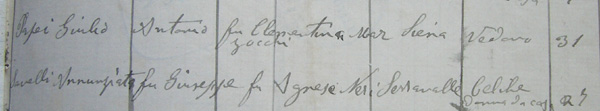 Papei Giulio Antonio fu Clementina Mar Siena Vedovo 31
Zocchi
Annunziata fu Giuseppe fu Agnese Neri Serravalle Celibe
Donna da casa 25